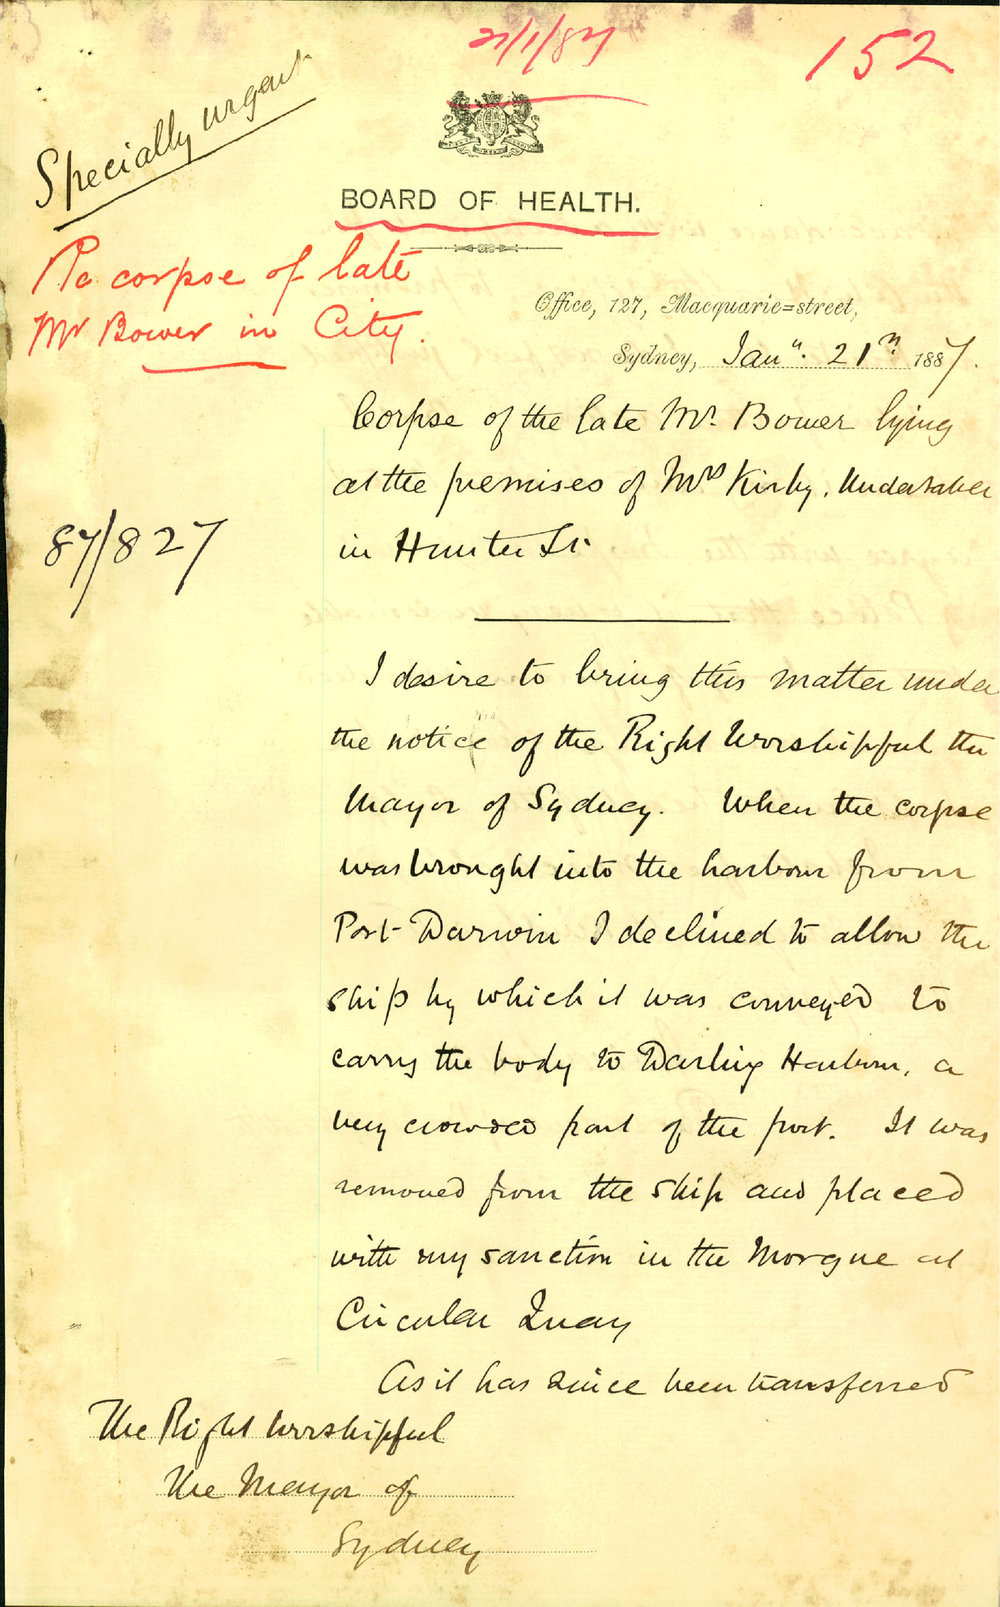 21/1/87
152
Specially urgent
BOARD OF HEALTH.
Re corpse of late
Mr Bower in City.
Office, 127, Macquarie=street,
Sydney, Jany. 21st 1887.
87/827
Corpse of the late Mr. Bower lying
at the premises of Mrs Kirby, Undertaker
in Hunter St.
I desire to bring this matter under
the notice of the Right Worshipful the
Mayor of Sydney. When the corpse
was brought into the harbour from
Port Darwin I declined to allow the
ship by which it was conveyed to
carry the body to Darling Harbour, a
very crowded part of the port. It was
removed from the ship and placed
with my sanction in the Morgue at
Circular Quay
As it has since been transferred
The Right Worshipful
The Mayor of
Sydney